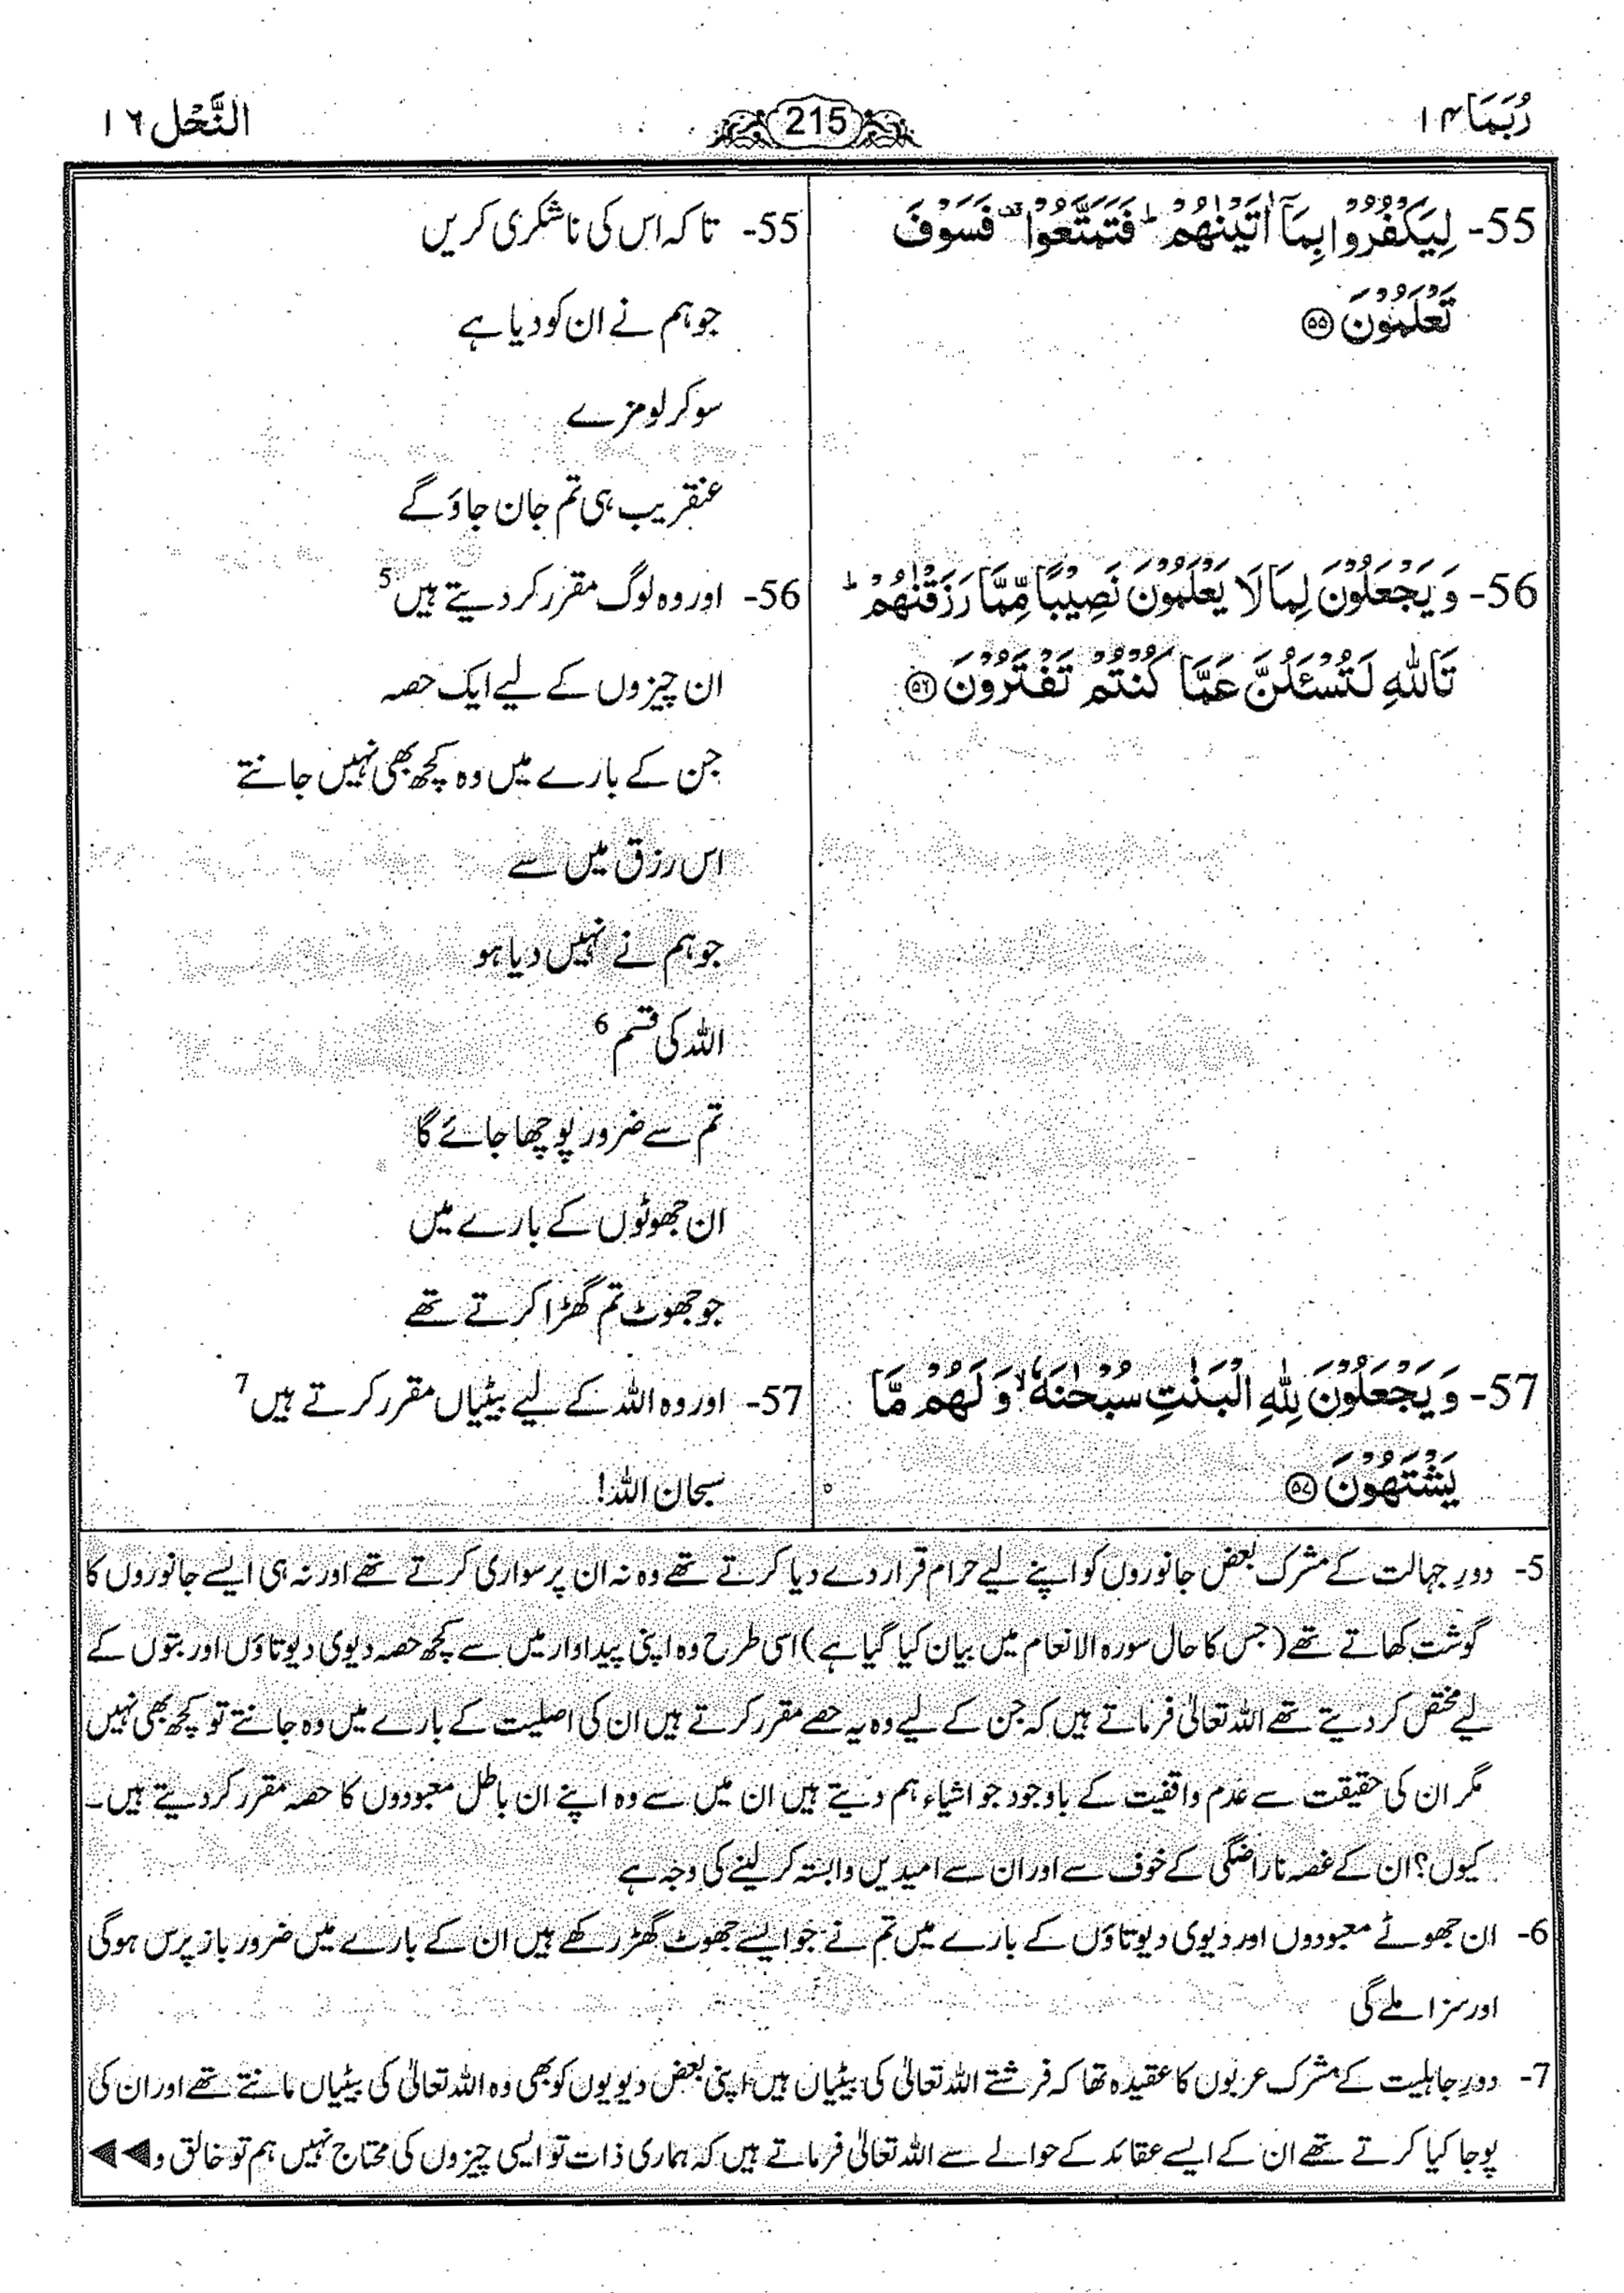 رُبَمَا ۱۴
215
النَّحْل ۱۶
55- لِيَكْفُرُوْا بِمَآ اٰتَيْنٰهُمْ ؕ فَتَمَتَّعُوْا ۫ فَسَوْفَ
تَعْلَمُوْنَ ۵۵
56- وَ يَجْعَلُوْنَ لِمَا لَا يَعْلَمُوْنَ نَصِيْبًا مِّمَّا رَزَقْنٰهُمْ ؕ
تَاللّٰهِ لَتُسْـَٔلُنَّ عَمَّا كُنْتُمْ تَفْتَرُوْنَ ۵۶
57- وَ يَجْعَلُوْنَ لِلّٰهِ الْبَنٰتِ سُبْحٰنَهٗ ۙ وَ لَهُمْ مَّا
يَشْتَهُوْنَ ۵۷
55- تاکہ اس کی ناشکری کریں
جو ہم نے ان کو دیا ہے
سو کر لو مزے
عنقریب ہی تم جان جاؤ گے
56- اور وہ لوگ مقرر کر دیتے ہیں 5
ان چیزوں کے لیے ایک حصہ
جن کے بارے میں وہ کچھ بھی نہیں جانتے
اس رزق میں سے
جو ہم نے نہیں دیا ہو
اللہ کی قسم 6
تم سے ضرور پوچھا جائے گا
ان جھوٹوں کے بارے میں
جو جھوٹ تم گھڑا کرتے تھے
57- اور وہ اللہ کے لیے بیٹیاں مقرر کرتے ہیں 7
سبحان اللہ!
5- دورِ جہالت کے مشرک بعض جانوروں کو اپنے لیے حرام قرار دے دیا کرتے تھے وہ نہ ان پر سواری کرتے تھے اور نہ ہی ایسے جانوروں کا
گوشت کھاتے تھے (جس کا حال سورہ الانعام میں بیان کیا گیا ہے) اسی طرح وہ اپنی پیداوار میں سے کچھ حصہ دیوی دیوتاؤں اور بتوں کے
لیے مختص کر دیتے تھے اللہ تعالیٰ فرماتے ہیں کہ جن کے لیے وہ یہ حصے مقرر کرتے ہیں ان کی اصلیت کے بارے میں وہ جانتے تو کچھ بھی نہیں
مگر ان کی حقیقت سے عدم واقفیت کے باوجود جو اشیاء ہم دیتے ہیں ان میں سے وہ اپنے ان باطل معبودوں کا حصہ مقرر کر دیتے ہیں۔
کیوں؟ ان کے غصہ ناراضگی کے خوف سے اور ان سے امیدیں وابستہ کر لینے کی وجہ سے
6- ان جھوٹے معبودوں اور دیوی دیوتاؤں کے بارے میں تم نے جو ایسے جھوٹ گھڑ رکھے ہیں ان کے بارے میں ضرور باز پرس ہوگی
اور سزا ملے گی
7- دورِ جاہلیت کے مشرک عربوں کا عقیدہ تھا کہ فرشتے اللہ تعالیٰ کی بیٹیاں ہیں اپنی بعض دیویوں کو بھی وہ اللہ تعالیٰ کی بیٹیاں مانتے تھے اور ان کی
پوجا کیا کرتے تھے ان کے ایسے عقائد کے حوالے سے اللہ تعالیٰ فرماتے ہیں کہ ہماری ذات تو ایسی چیزوں کی محتاج نہیں ہم تو خالق و ◀◀